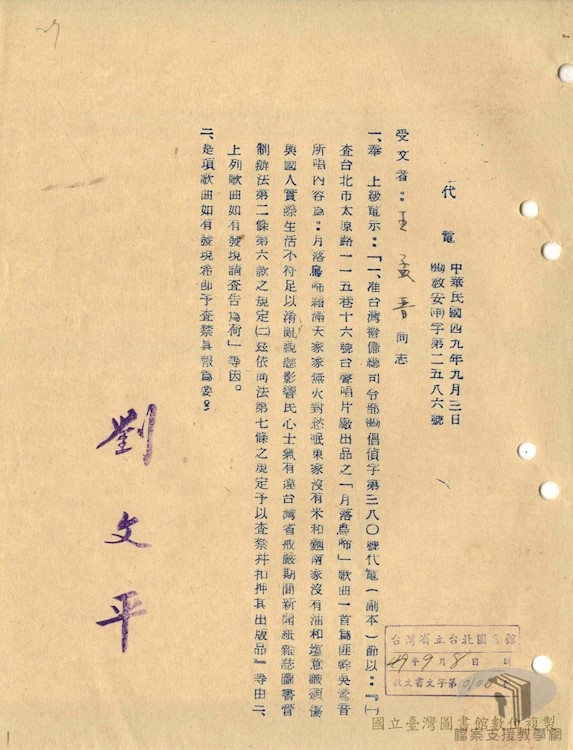 代電
中華民國四九年九月三日
受文者：王孟晋同志
一、奉　上級電示：『一、准台灣警備總司令部倡偵字第三八〇號代電（副本）節以：『㈠
查台北市太原路一一五巷十六號台聲唱片廠出品之「月落烏啼」歌曲一首爲匪幹吳電音
所唱內容爲：月落烏啼霜滿天家家無火對愁眠東家沒有米和麵南家沒有油和塩意識頹傷
與國人實際生活不符足以淆亂視聽影響民心士氣有違台灣省戒嚴期間新聞紙雜誌圖書管
制辦法第二條第六款之規定㈡玆依同法第七條之規定予以查禁幷扣押其出版品』等由二、
上列歌曲如有發現請查吿爲荷」等因。
二、是項歌曲如有發現希卽予查禁具報爲要。
劉文平
台灣省立台北圖館
49年9月8日
收文書文字第
國立臺灣圖書館數位複製
檔案支援教學網